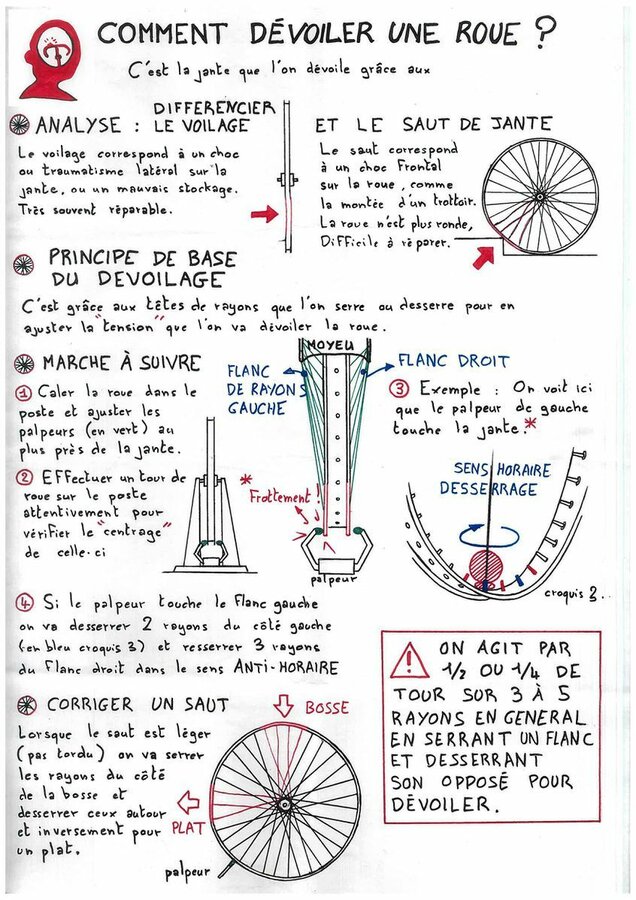 COMMENT DÉVOILER UNE ROUE ?
C'est la jante que l'on dévoile grâce aux
ANALYSE : DIFFERENCIER
LE VOILAGE
Le voilage correspond à un choc
ou traumatisme latéral sur la
jante, ou un mauvais stockage.
Très souvent réparable.
ET LE SAUT DE JANTE
Le saut correspond
à un choc Frontal
sur la roue, comme
la montée d'un trottoir.
La roue n'est plus ronde,
Difficile à réparer.
PRINCIPE DE BASE
DU DEVOILAGE
C'est grâce aux têtes de rayons que l'on serre ou desserre pour en
ajuster la "tension" que l'on va dévoiler la roue.
MARCHE À SUIVRE
1 Caler la roue dans le
poste et ajuster les
palpeurs (en vert) au
plus près de la jante.
2 Effectuer un tour de
roue sur le poste
attentivement pour
vérifier le "centrage"
de celle-ci
MOYEU
FLANC
DE RAYONS
GAUCHE
FLANC DROIT
* Frottement !
palpeur
3 Exemple : On voit ici
que le palpeur de gauche
touche la jante.*
SENS HORAIRE
DESSERRAGE
croquis 3.
4 Si le palpeur touche le flanc gauche
on va desserrer 2 rayons du côté gauche
(en bleu croquis 3) et resserrer 3 rayons
du Flanc droit dans le sens ANTI-HORAIRE
! ON AGIT PAR
1/2 OU 1/4 DE
TOUR SUR 3 À 5
RAYONS EN GENERAL
EN SERRANT UN FLANC
ET DESSERRANT
SON OPPOSÉ POUR
DÉVOILER.
CORRIGER UN SAUT
Lorsque le saut est léger
(pas tordu) on va serrer
les rayons du côté
de la bosse et
desserrer ceux autour
et inversement pour
un plat.
BOSSE
PLAT
palpeur